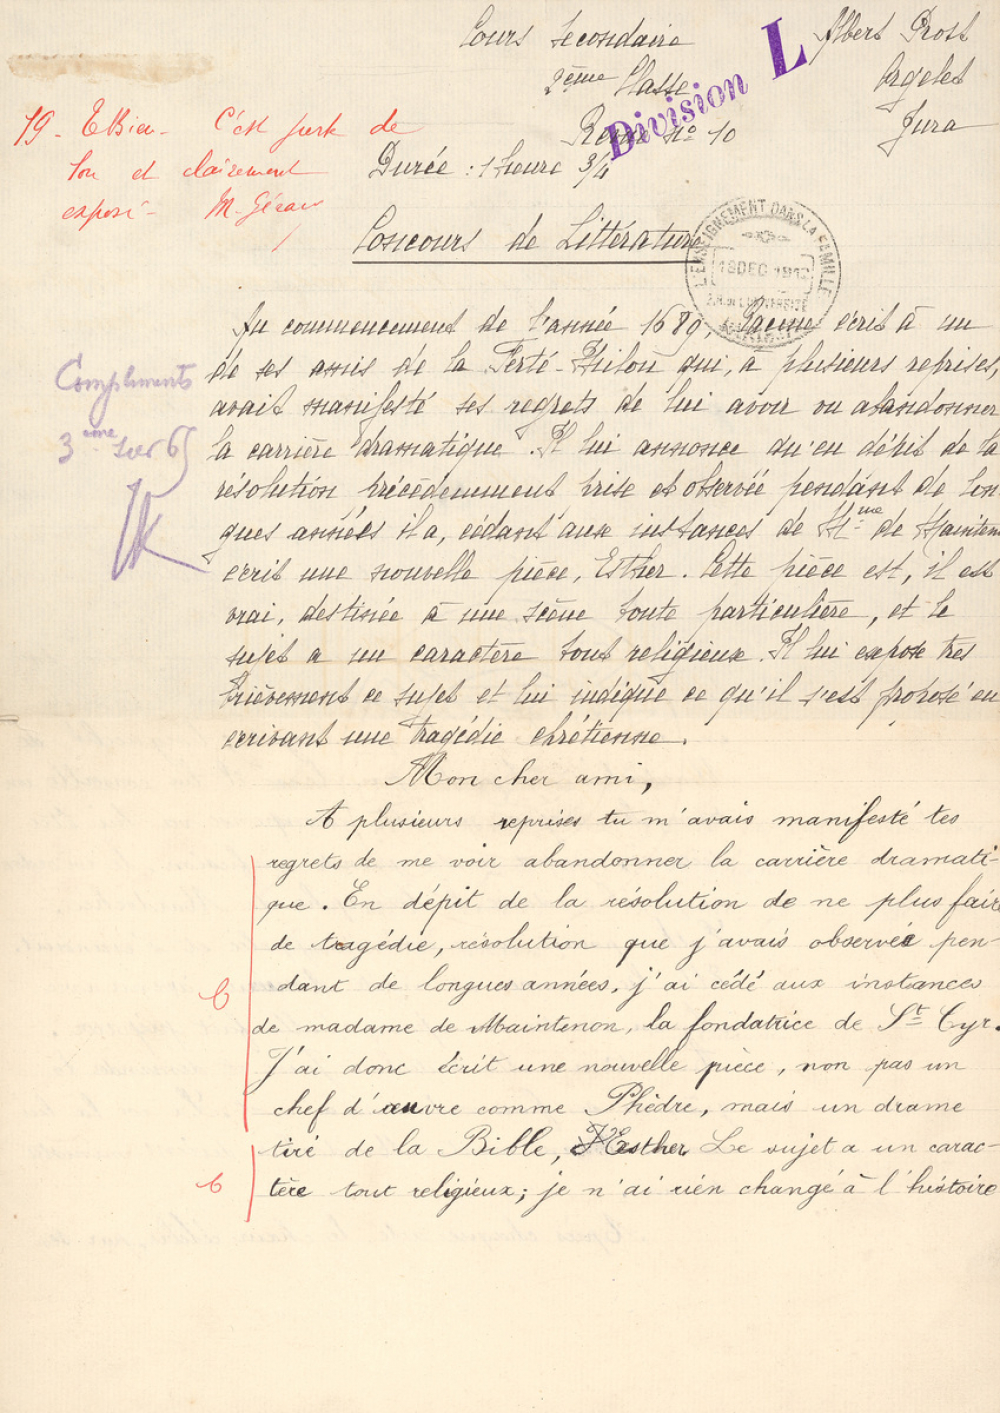 Cours Secondaire
2ème Classe
Division L
Albert Prost
Orgelet
Jura
Revue No 10
Durée : 1 heure 3/4
19 - T Bien - C'est juste de
ton et clairement
exposé -
Concours de Littérature
L'ENSEIGNEMENT DANS LA FAMILLE
18 DEC 1912
Au commencement de l'année 1689, Racine écrit à un
de ses amis de la Ferté-Milon qui, à plusieurs reprises,
avait manifesté ses regrets de lui avoir vu abandonner
la carrière dramatique. Il lui annonce qu'en dépit de la
résolution précédemment prise et observée pendant de lon
gues années il a, cédant aux instances de Mme de Mainten
écrit une nouvelle pièce, Esther. Cette pièce est, il est
vrai, destinée à une scène toute particulière, et le
sujet a un caractère tout religieux. Il lui expose très
brièvement ce sujet et lui indique ce qu'il s'est proposé en
écrivant une tragédie chrétienne.
Compliments
3ème sur 65
Mon cher ami,
A plusieurs reprises tu m'avais manifesté tes
regrets de me voir abandonner la carrière dramati-
que. En dépit de la résolution de ne plus faire
de tragédie, résolution que j'avais observée pen-
dant de longues années, j'ai cédé aux instances
de madame de Maintenon, la fondatrice de St Cyr.
J'ai donc écrit une nouvelle pièce, non pas un
chef d'œuvre comme Phèdre, mais un drame
tiré de la Bible, Esther. Le sujet a un carac-
tère tout religieux; je n'ai rien changé à l'histoire